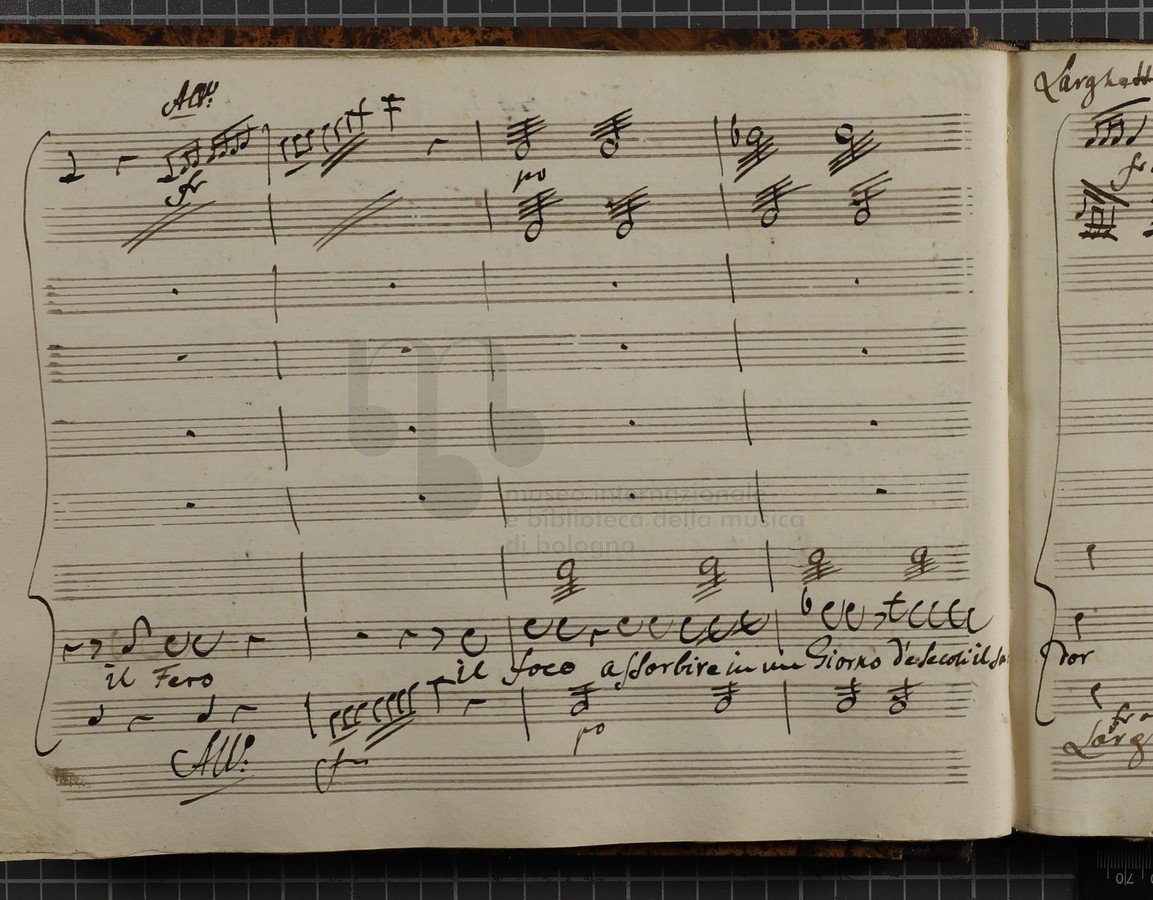 All.º
Larghett
fr
fr
po
museo internazionale
e biblioteca della musica
di bologna
il Fero il foco assorbire in un Giorno de secoli il
dor
po
All.º
fr
Larg
70